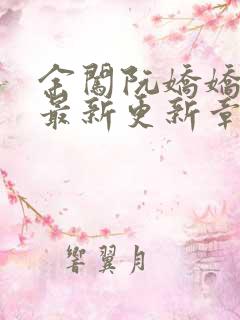 金闕阮嬌嬌
最新更新章
響翼月